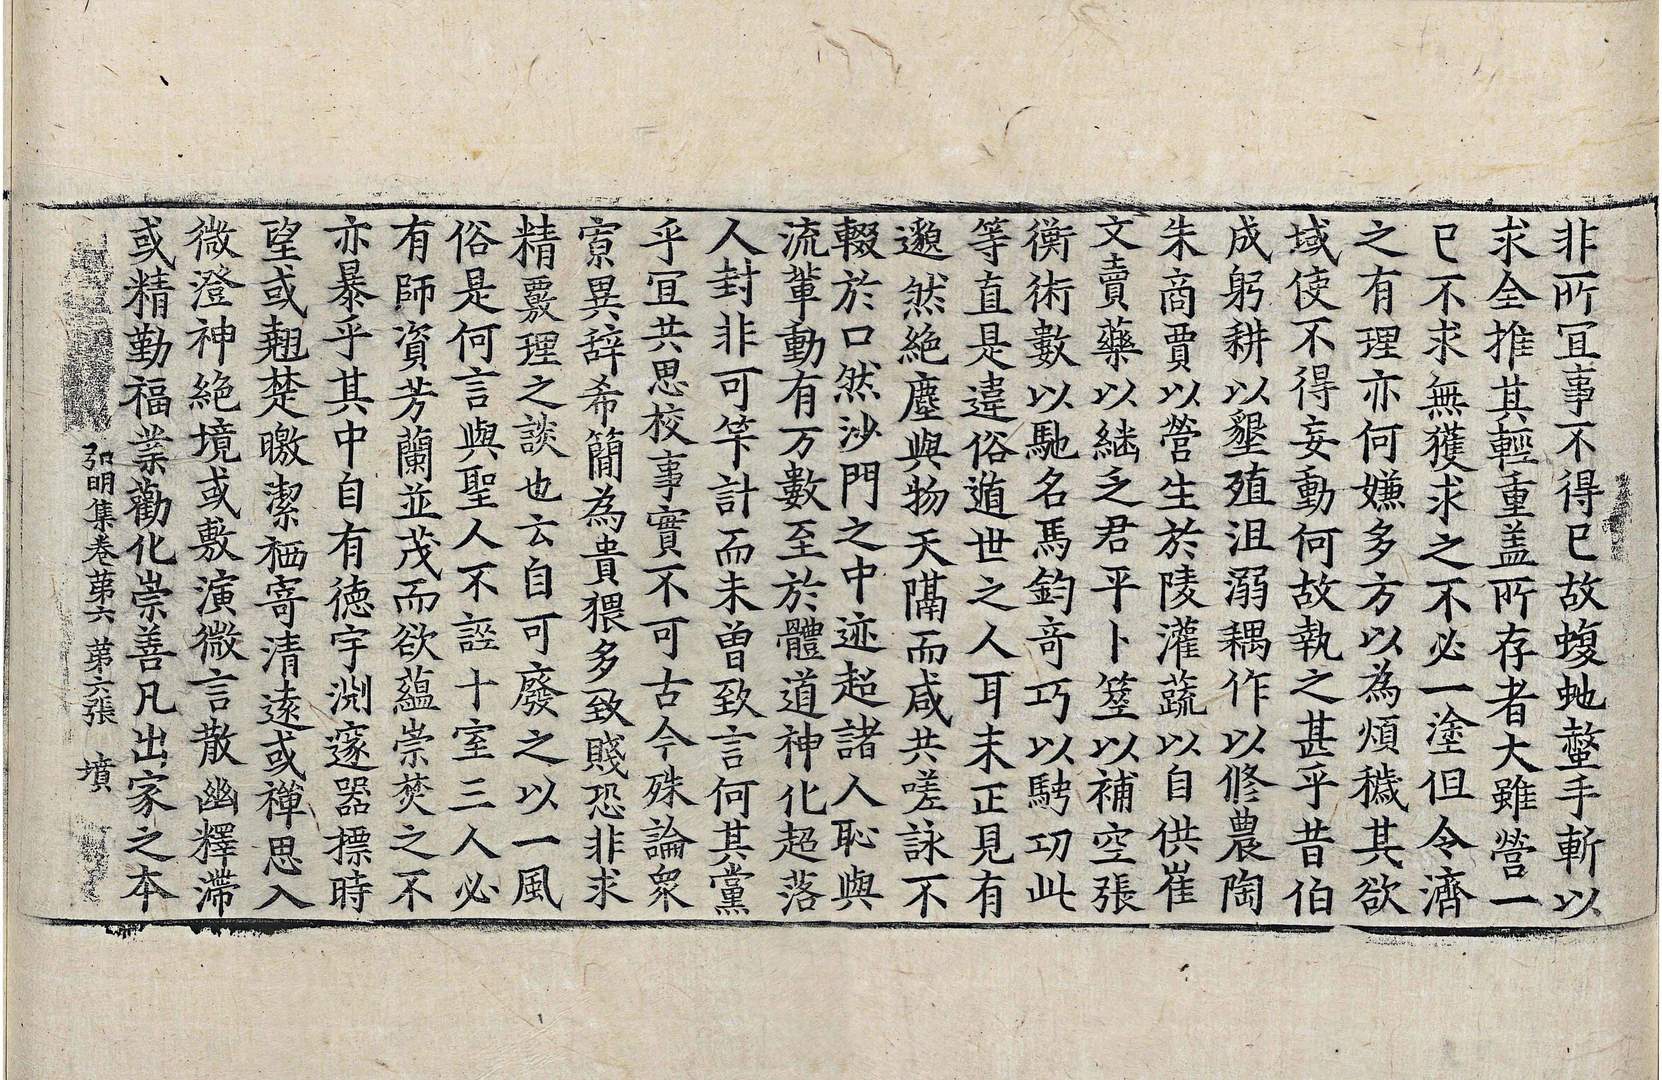 非所冝事不得已故蝮虵螫手斬以
求全推其輕重盖所存者大雖營一
已不求無獲求之不必一塗但令濟
之有理亦何嫌多方以為煩穢其欲
域使不得妄動何故執之甚乎昔伯
成躬耕以墾殖沮溺耦作以修農陶
朱商賈以營生於陵灌蔬以自供崔
文賣藥以継乏君平卜筮以補空張
衡術數以馳名馬鈞竒巧以騁功此
等直是違俗遁世之人耳未正見有
邈然絶塵與物天隔而咸共嗟詠不
輟於口然沙門之中迹超諸人恥與
流輩動有万數至於體道神化超落
人封非可筭計而未曽致言何其黨
乎冝共思校事實不可古今殊論衆
寮異辭希簡為貴猥多致賤恐非求
精覈理之談也云自可廢之以一風
俗是何言與聖人不誣十室三人必
有師資芳蘭並茂而欲藴崇焚之不
亦暴乎其中自有徳宇渊邃器摽時
望或翹楚皦潔栖寄清遠或禪思入
微澄神絶境或敷演微言散幽釋滯
或精勤福業勸化崇善凡出家之本
弘明集卷苐六 苐六張 墳